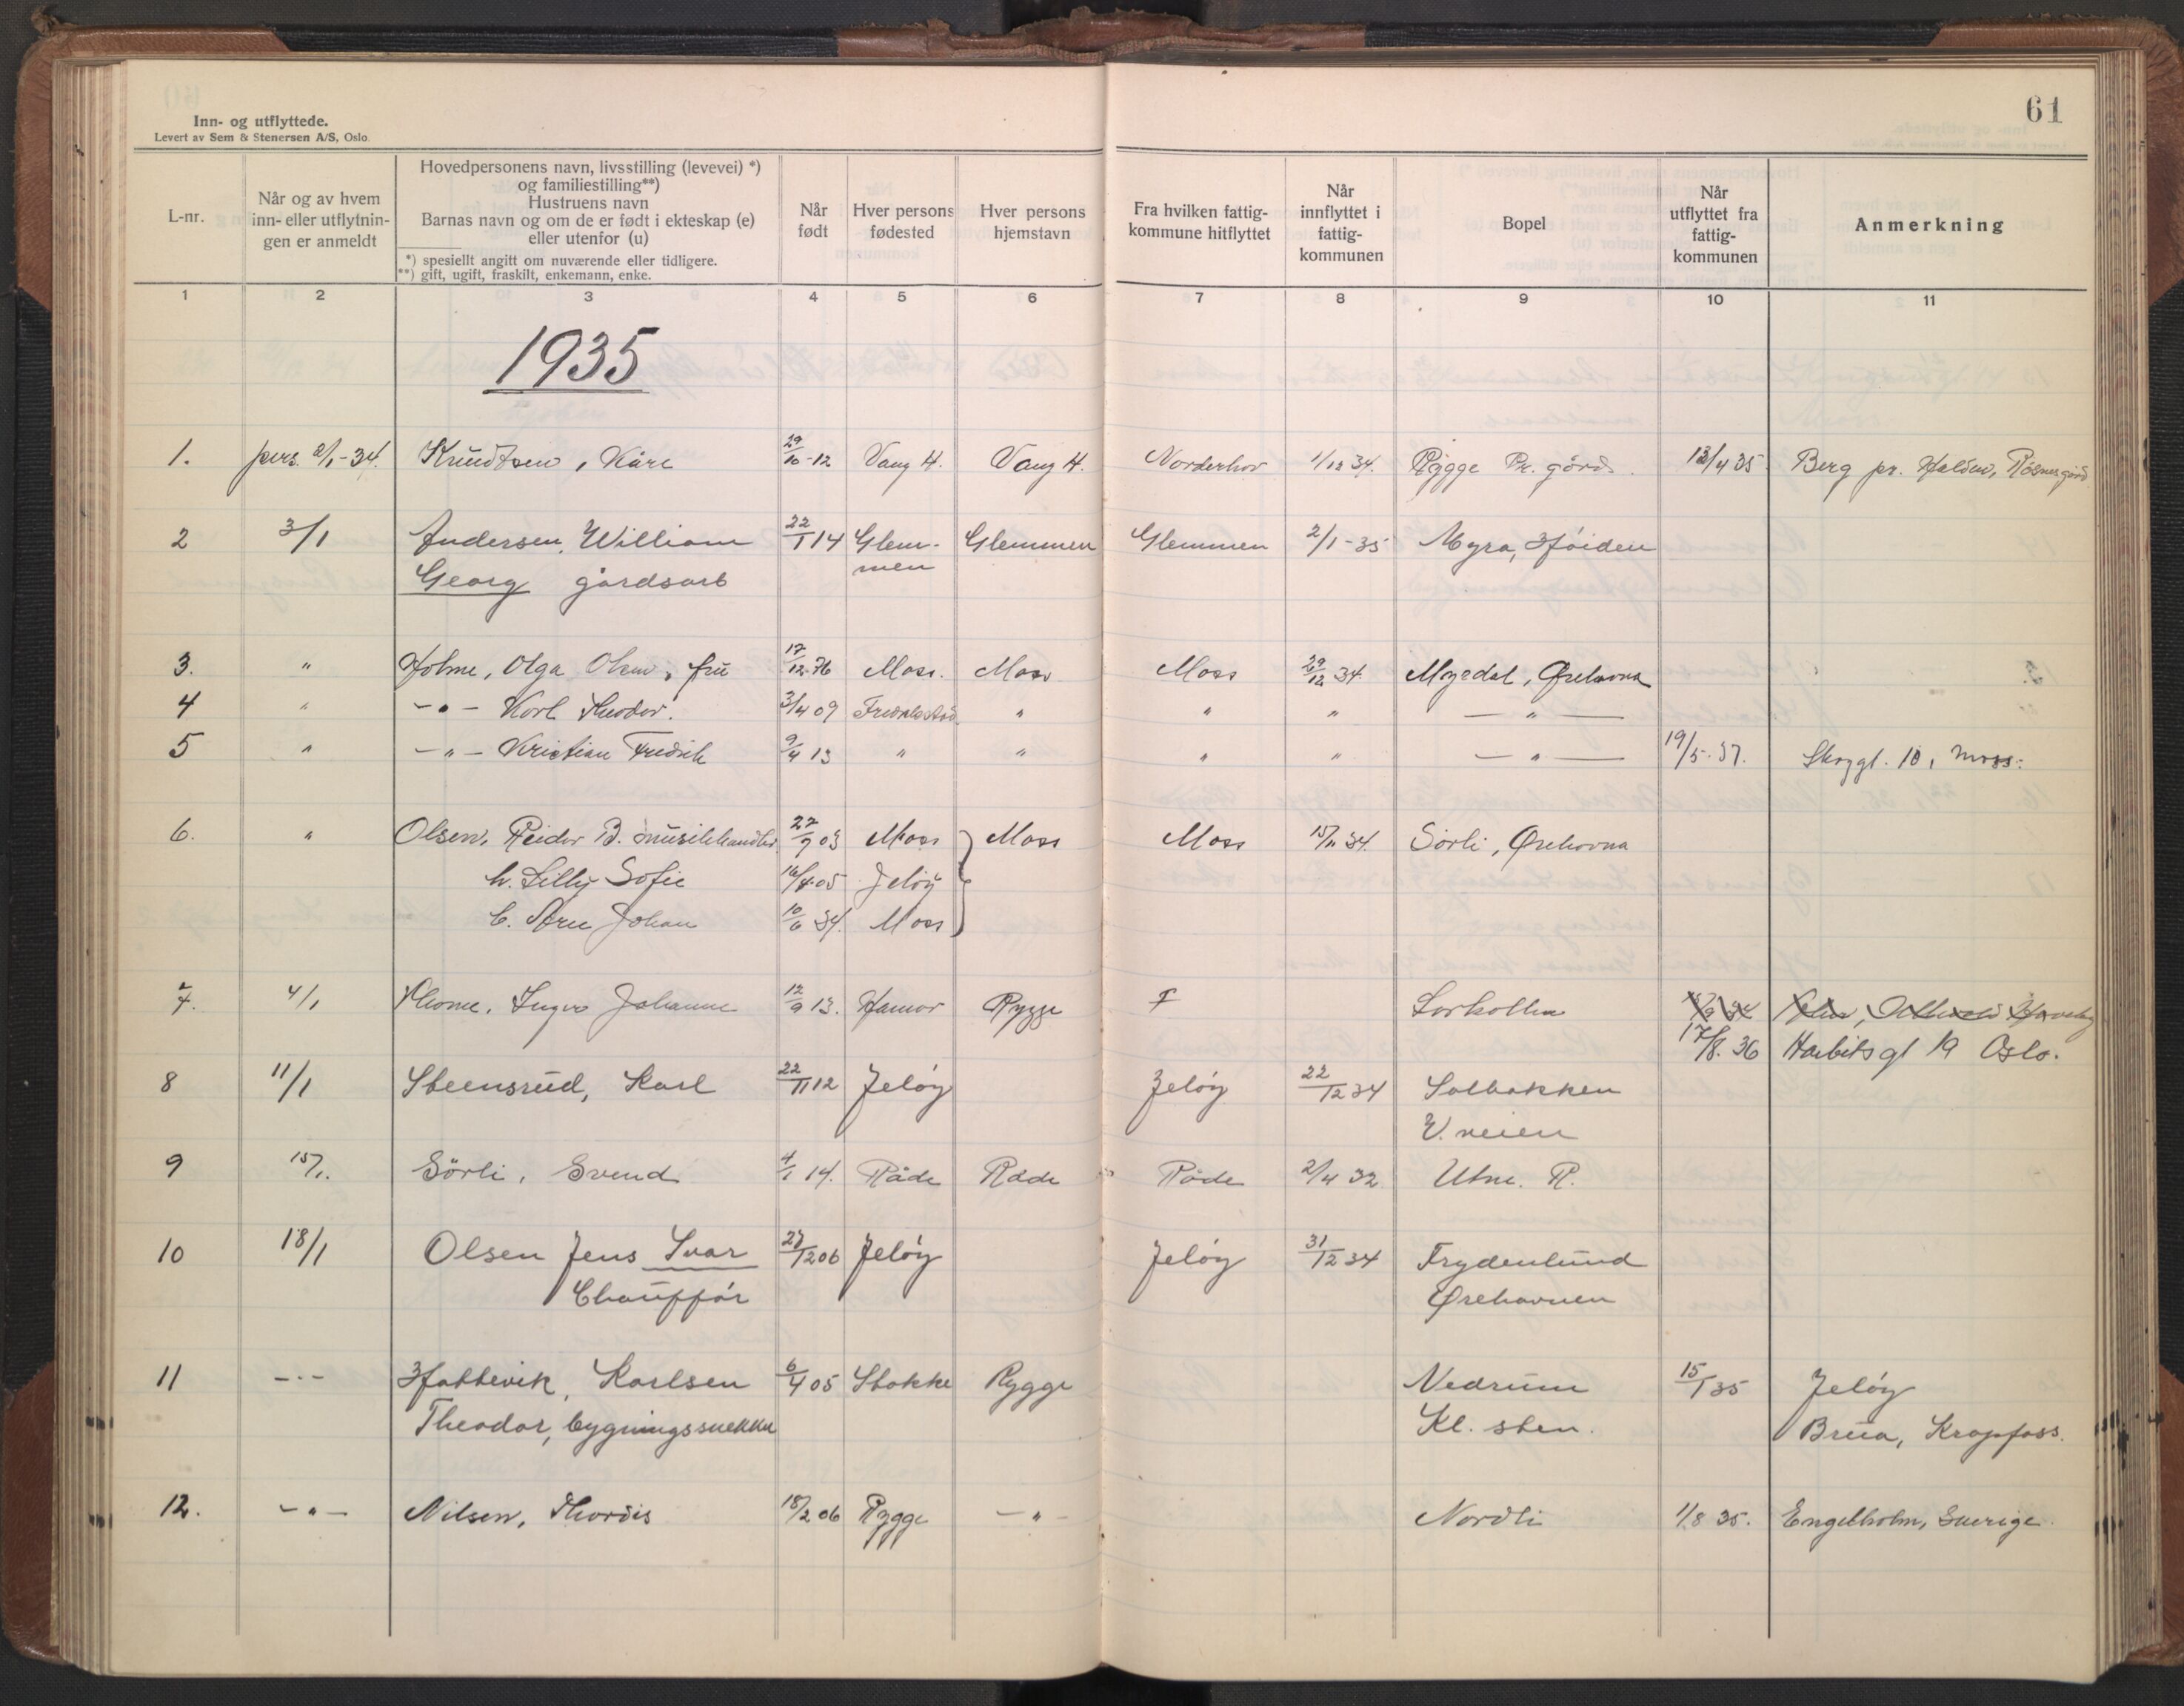 Inn- og utflyttede.
Levert av Sem & Stenersen A/S, Oslo.
61
L-nr.
Når og av hvem
inn- eller utflytnin-
gen er anmeldt
Hovedpersonens navn, livsstilling (levevei) *)
og familiestilling**)
Hustruens navn
Barnas navn og om de er født i ekteskap (e)
eller utenfor (u)
*) spesiellt angitt om nuværende eller tidligere.
**) gift, ugift, fraskilt, enkemann, enke.
Når
født
Hver persons
fødested
Hver persons
hjemstavn
Fra hvilken fattig-
kommune hitflyttet
Når
innflyttet i
fattig-
kommunen
Bopel
Når
utflyttet fra
fattig-
kommunen
Anmerkning
1 2 3 4 5 6 7 8 9 10 11
1935
1. pers. 2/1-34. Knudtsen, Kåre 29/10-12 Vang H. Vang H. Norderhov 1/12 34. Rygge Pr.gård. 13/4 35 Berg pr. Halden,
2 3/1 Andersen, William 22/1 14 Glem- Glemmen Glemmen 2/1-35 Myra, Høiden
Georg gårdsarb men
3. " Holme, Olga Olsen, fru 17/12.76 Moss. Moss Moss 29/12 34. Myrdal, Ørehavna
4 " -"- Karl Theodor. 3/4 09 Fredrikstad " " " - " -
5 " -"- Kristian Fredrik 9/4 13 " " " " - " - 19/5.37. Skoggt. 10, Moss.
6. " Olsen, Reidar B. musikkhandler 27/9 03 Moss Moss Moss 15/11 34. Sörli, Ørehavna
h. Lilly Sofie 16/4.05 Jeløy
b. Arne Johan 10/6 34. Moss
7. 4/1 Thome, Inger Johanne 12/9 13. Hamar Rygge F Larkollen
17/8. 36 Harbitsgt 19 Oslo.
8 11/1 Steensrud, Karl 22/11 12 Jeløy Jeløy 22/12 34 Solbakken
V.veien
9 15/1. Sörli, Svend 4/1 14. Råde Råde Råde 2/4 32 Utne. R.
10 18/1 Olsen Jens Ivar 27/12 06 Jeløy Jeløy 31/12 34 Frydenlund
Chauffør Ørehavnen
11 -"- Habbevik, Karlsen 6/4 05 Stokke Rygge Nedrum 15/1 35 Jeløy
Theodor, bygningssnekker Kl. sten. Brua, Krapfoss.
12. -"- Nilsen, Thordis 18/2 06 Rygge -"- Nordli 1/8 35. Engelholm, Sverige.